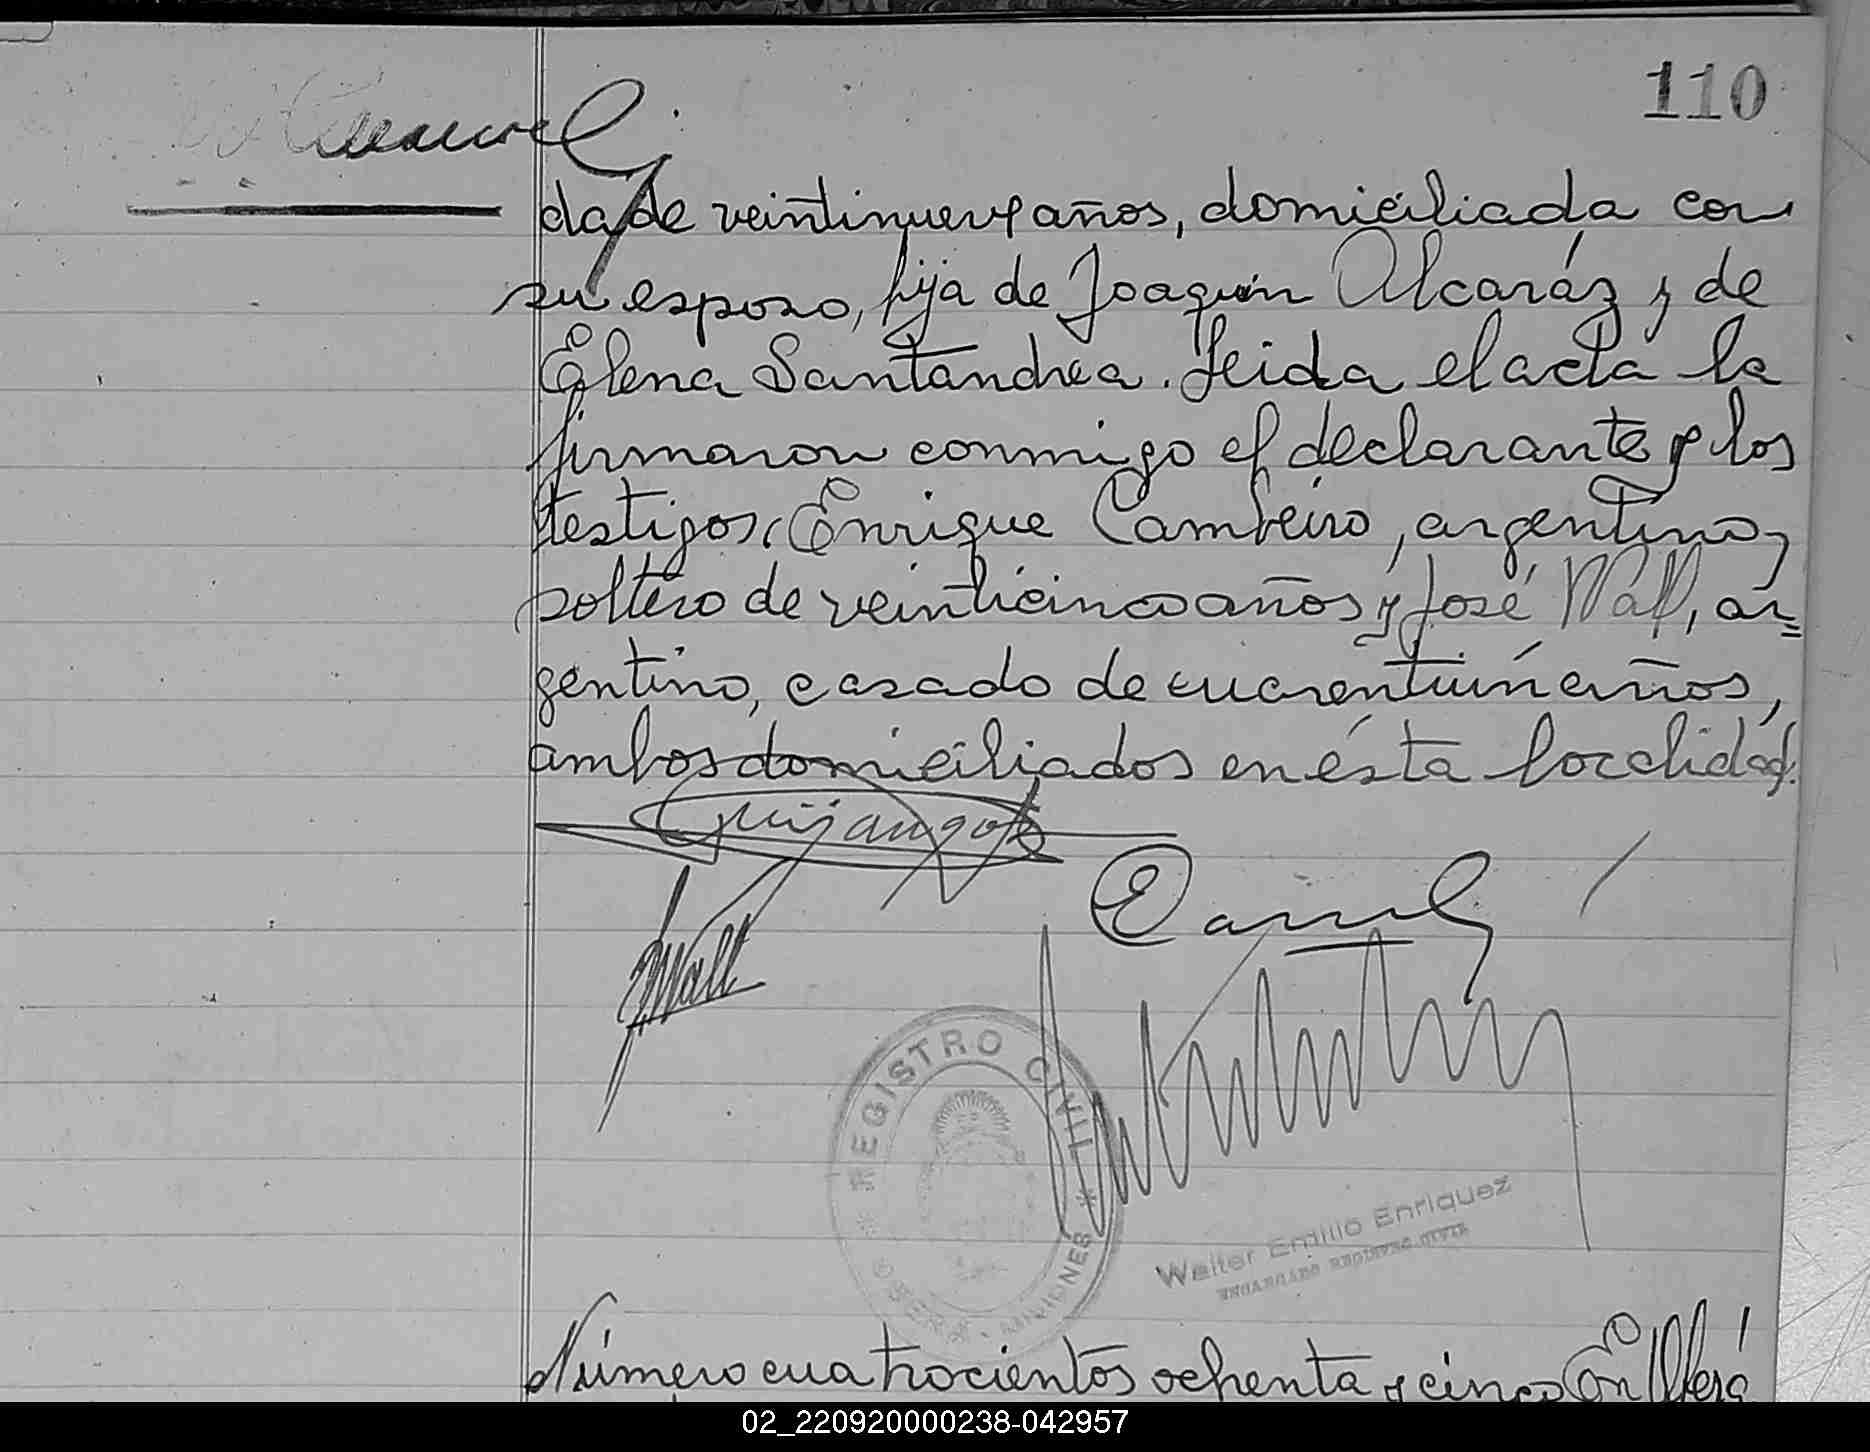 110
da, de veintinueve años, domiciliada con
su esposo, hija de Joaquin Alcaráz y de
Elena Santandrea. Leida el acta la
firmaron conmigo el declarante y los
testigos, Enrique Cambeiro, argentino,
soltero de veinticinco años y José Wall, ar=
gentino, casado de cuarentiún años,
ambos domiciliados en ésta localidad.
Guijango
JWall
REGISTRO CIVIL
OBERA - MISIONES
Walter Emilio Enriquez
ENCARGADO REGISTRO CIVIL
Número cuatrocientos ochenta y cinco En Oberá
02_220920000238-042957